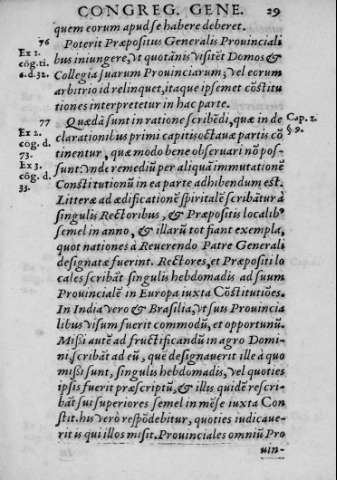 CONGREG. GENE. 29
quem eorum apud se habere deberet.
76 Poterit Præpositus Generalis Prouinciali
Ex 1. bus iniungere, vt quotãnis visitẽt Domos &
cõg. ti. Collegia suarum Prouinciarum, vel eorum
6. d. 32. arbitrio id relinquet, itaque ipsemet cõstitu
tiones interpretetur in hac parte.
77 Quædã sunt in ratione scribẽdi, quæ in de Cap. 2.
Ex 2. clarationibus primi capitis octauæ partis cõ §. 9.
cog. d. tinentur, quæ modo bene obseruari nõ pos-
73. sunt: vnde remediũ per aliquã immutationẽ
Ex 3. Constitutionũ in ea parte adhibendum est.
cõg. d. Litteræ ad ædificationẽ spiritalẽ scribãtur à
33. singulis Rectoribus, & Præpositis localibꝰ
semel in anno, & illarũ tot fiant exempla,
quot nationes à Reuerendo Patre Generali
designatæ fuerint. Rectores, et Præpositi lo
cales scribãt singulis hebdomadis ad suum
Prouincialẽ in Europa iuxta Cõstitutiões.
In India vero & Brasilia, vt suis Prouincia
libus visum fuerit commodũ, et opportunũ.
Missi autẽ ad fructificandũ in agro Domi-
ni, scribãt ad eũ, que designauerit ille à quo
missi sunt, singulis hebdomadis, vel quoties
ipsis fuerit præscriptũ, & illis quidẽ rescri-
bãt sui superiores semel in mẽse iuxta Con
stit. his verò respõdebitur, quoties iudicaue-
rit is qui illos misit. Prouinciales omniũ Pro
uin-